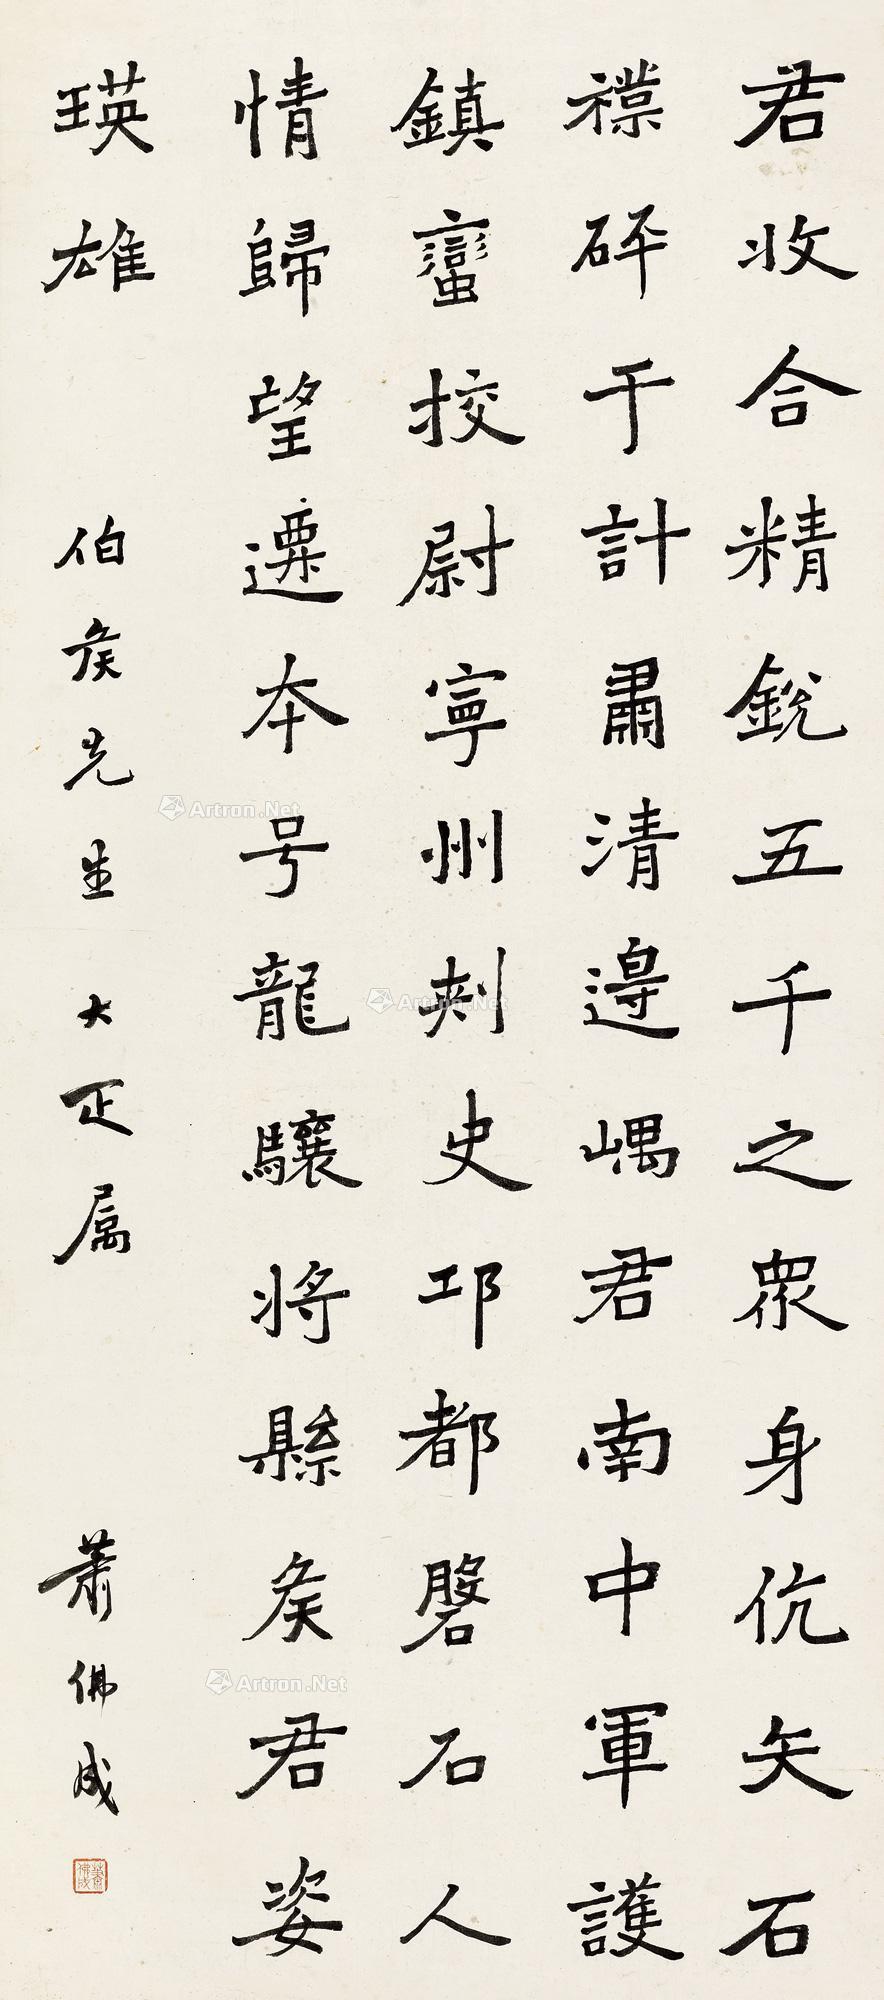 君收合精銳五千之眾身伉矢石
襍砕于計肅清邉嵎君南中軍護
鎮蠻挍尉寧州刾史邛都磬石人
情歸望遷本号龍驤将縣矦君姿
瑛雄
伯矦先生大疋属
萧佛成
萧佛成
Artron.Net
Artron.Net
Artron.Net